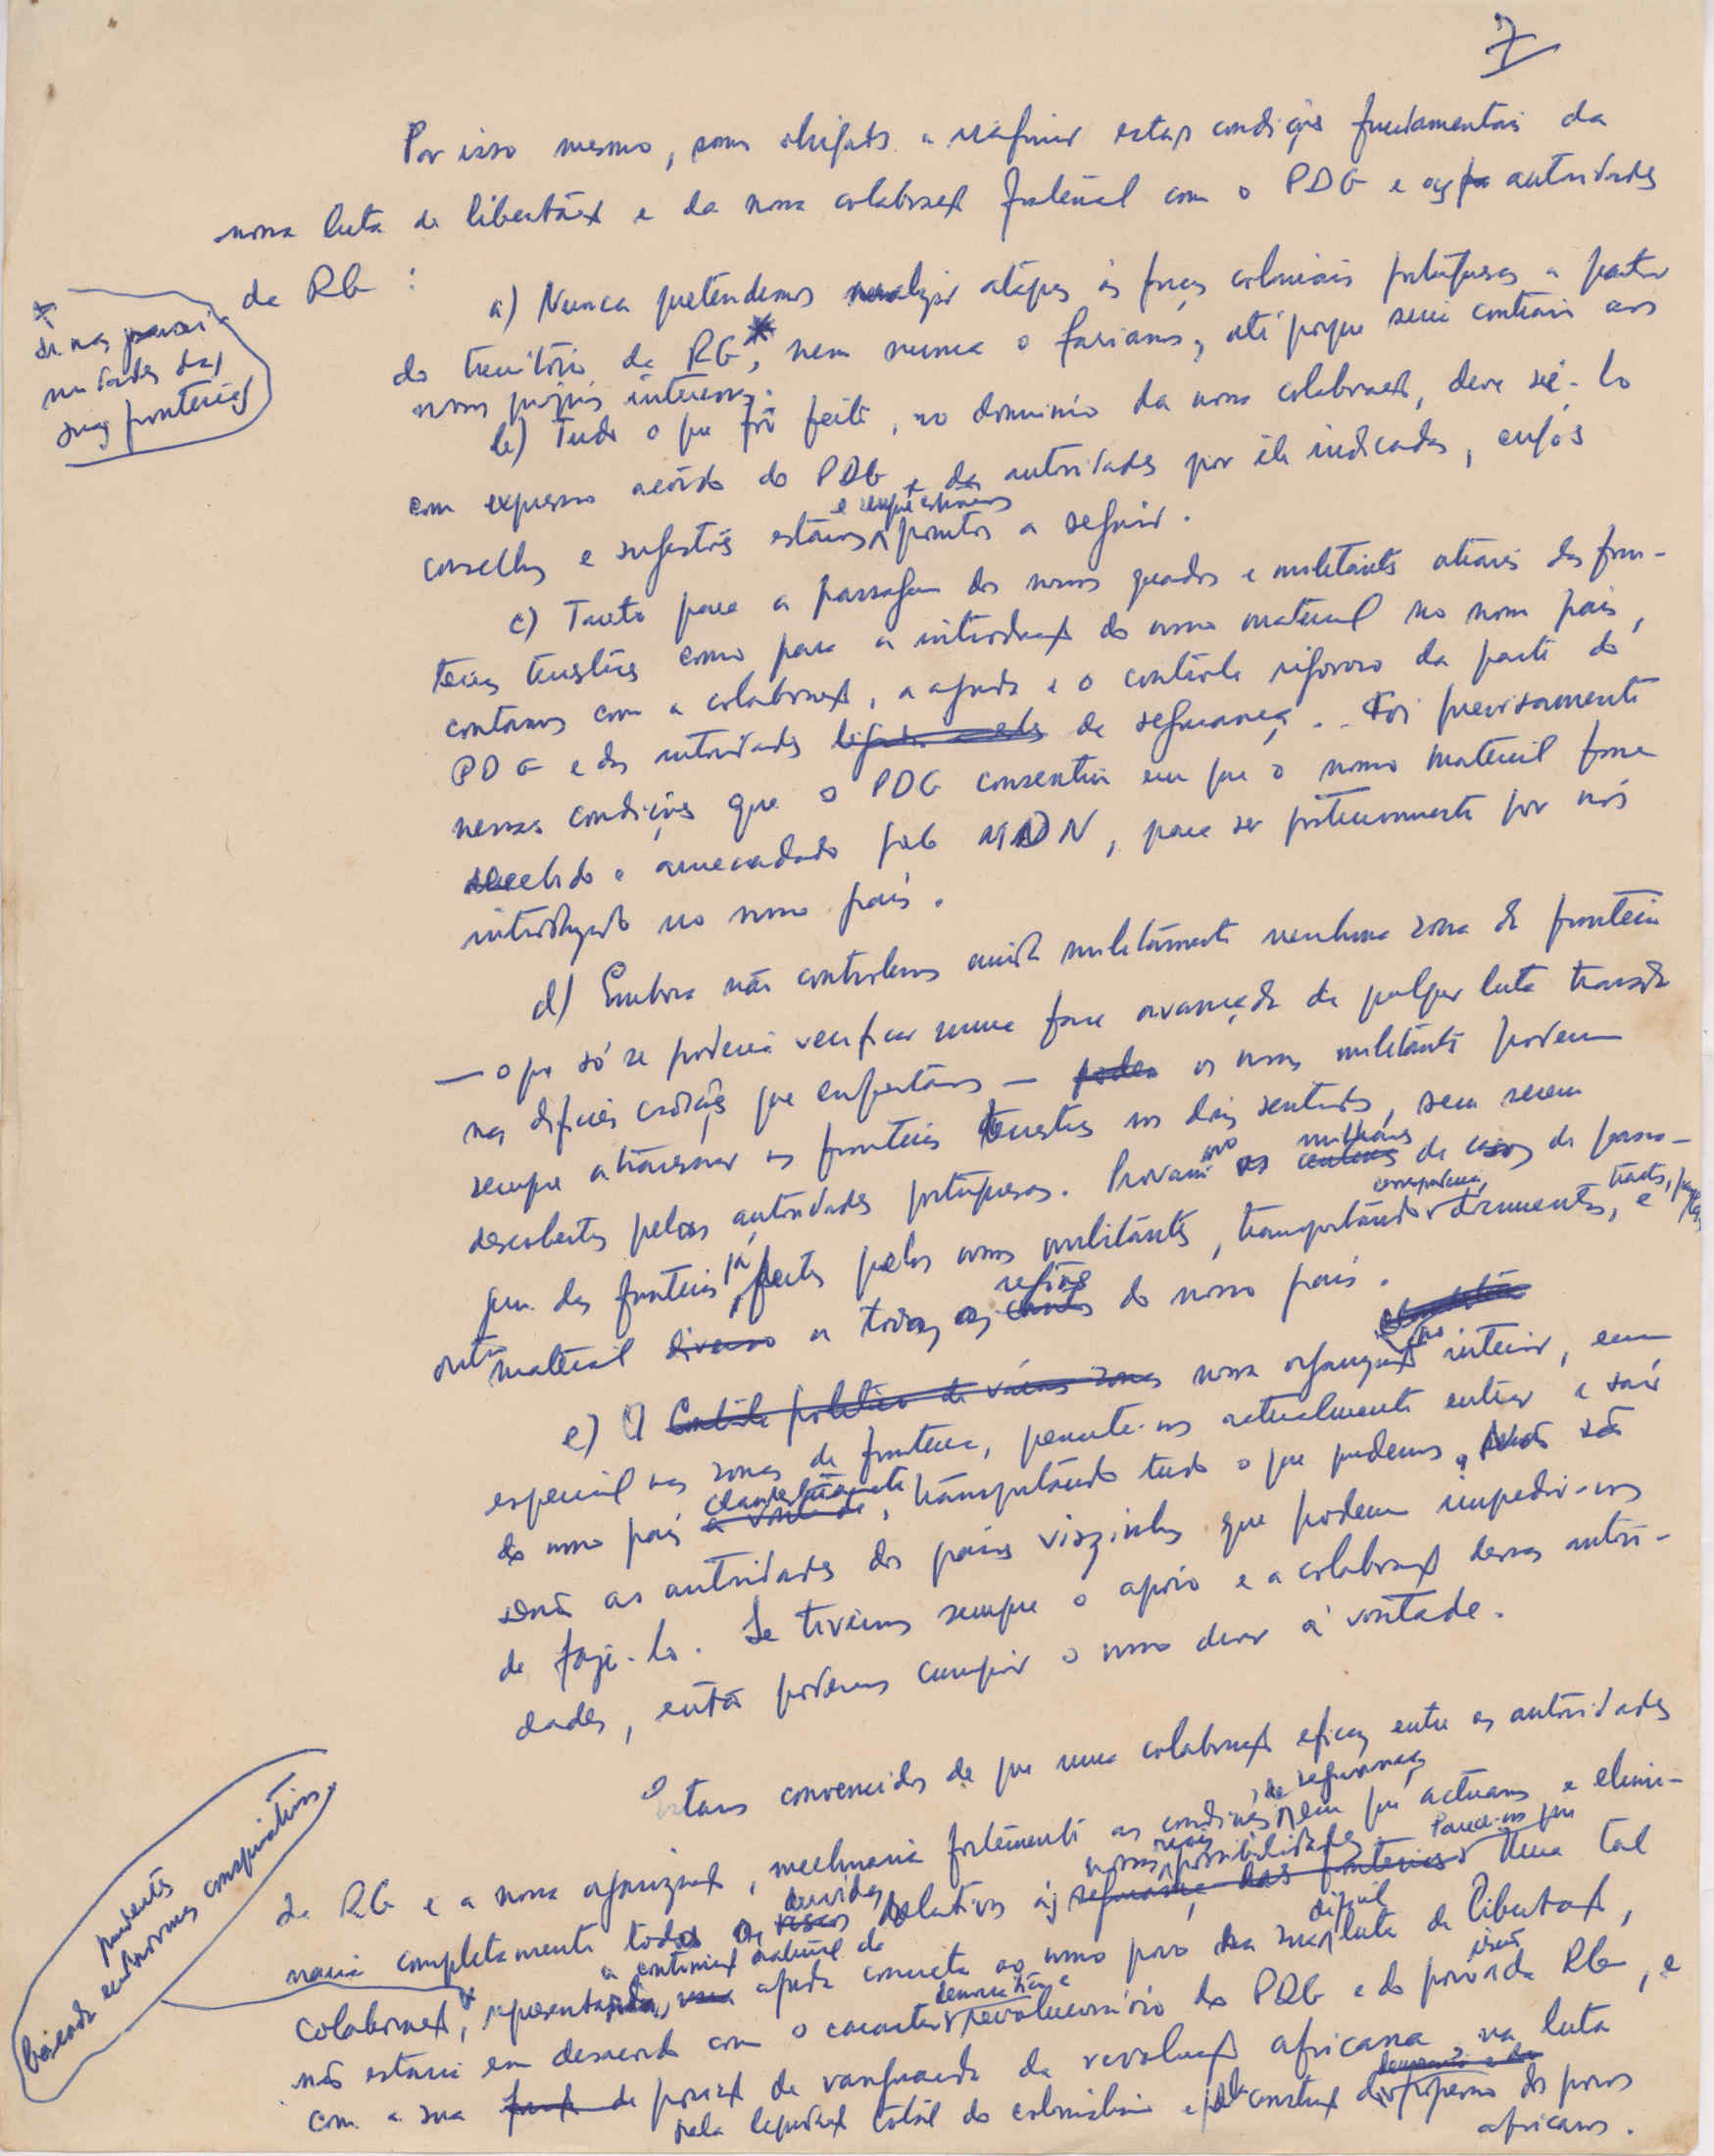 7
Por isso mesmo, somos obrigados a reafirmar estas condições fundamentais da
nossa luta de libertação e da nossa colaboração fraternal com o PDG e as autoridades
da RG :
a) Nunca pretendemos realizar ataques às forças coloniais portuguesas a partir
do território da RG*, nem nunca o faríamos, até porque seria contrário aos
nossos próprios interesses.
* ou nas proxi-
midades das
suas fronteiras
b) Tudo o que fôr feito, no domínio da nossa colaboração, deve sê-lo
com expresso acôrdo do PDG e das autoridades por êle indicadas, cujos
conselhos e sugestões estamos e sempre estivemos prontos a seguir.
c) Tanto para a passagem dos nossos quadros e militantes através das fron-
teiras terrestres como para a introdução do nosso material no nosso país,
contamos com a colaboração, a ajuda e o contrôle rigoroso da parte do
PDG e das autoridades de segurança. Foi precisamente
nessas condições que o PDG consentiu em que o nosso material fosse
recebido e arrecadado pelo MDN, para ser posteriormente por nós
introduzido no nosso país.
d) Embora não controlemos ainda militarmente nenhuma zona de fronteira
— o que só se poderia verificar numa fase avançada de qualquer luta travada
nas difíceis condições que enfrentamos — os nossos militantes podem
sempre atravessar as fronteiras terrestres nos dois sentidos, sem serem
descobertos pelas autoridades portuguesas. Provam-no os milhares de casos de passa-
gem das fronteiras já feitas pelos nossos militantes, transportando correspondência, documentos, tracts, e
outro material a todas as regiões do nosso país.
e) A nossa organização no interior, em
especial nas zonas de fronteira, permite-nos actualmente entrar e sair
do nosso país clandestinamente, transportando tudo o que pudermos. Só
senão as autoridades dos países vizinhos que podem impedir-nos
de fazê-lo. Se tivermos sempre o apoio e a colaboração dessas autori-
dades, então podemos cumprir o nosso dever à vontade.
Estamos convencidos de que uma colaboração eficaz entre as autoridades
da RG e a nossa organização, melhoraria fortemente as condições de segurança em que actuamos e elimi-
naria completamente todas as dúvidas relativas às nossas reais possibilidades. Parece-nos que uma tal
colaboração, representando a contínua ajuda concreta ao nosso povo na sua difícil luta de libertação,
não estaria em desacordo com o caracter democrático e revolucionário do PDG e do povo da RG, e
com a sua posição de vanguarda da revolução africana na luta
pela liquidação total do colonialismo e pela construção do progresso dos povos
africanos.
prudente
baseada em normas conspirativas